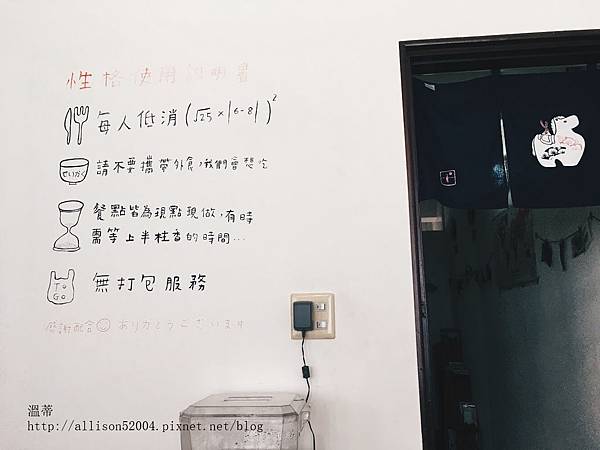 性格使用說明書
每人低消(√25×|6-8|)²
請不要攜帶外食,我們會想吃
せいかく
餐點皆為現點現做,有時
需等上半柱香的時間...
TO GO
無打包服務
感謝配合 ありがとうございます
溫蒂
http://allison52004.pixnet.net/blog